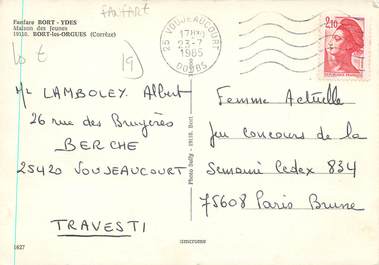 Fanfare BORT - YDES
Maison des Jeunes
19110. BORT-les-ORGUES (Corrèze)
FANFART
19
25 VOUJEAUCOURT
17H30
23-7
1985
DOUBS
2,20
REPUBLIQUE FRANÇAISE
Mr LAMBOLEY Albert
26 rue des Bruyères
BERCHE
25420 VOUJEAUCOURT
TRAVESTI
Photo Sully - 19110. Bort
Femme Actuelle
Jeu concours de la
Semaine Cedex 834
75608 Paris Brune
1627